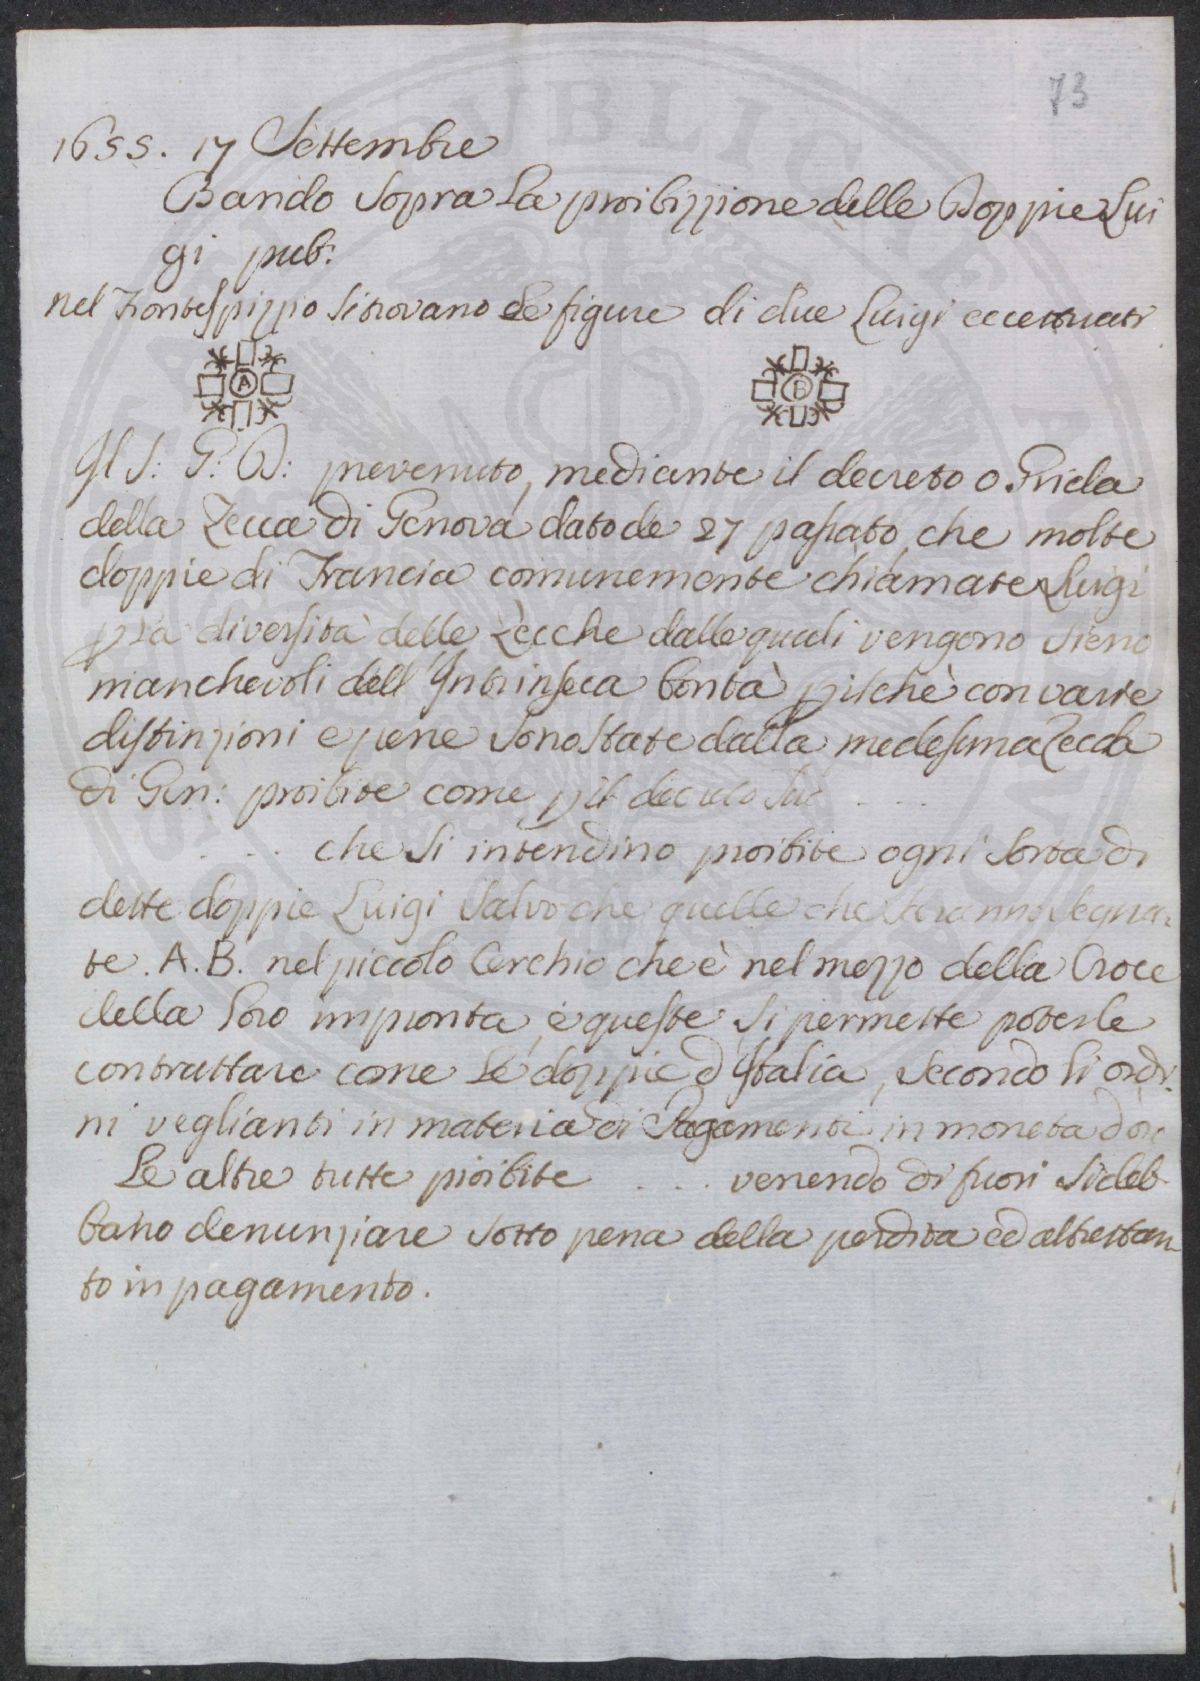 73
1655. 17 Settembre
Bando sopra la proibizzione delle Doppie Lui
gi pub:
nel Frontespizzio si trovano le figure di due Luigi eccettuati
A B
Il S: G: D: prevenuto, mediante il decreto o Grida
della Zecca di Genova dato de 27 passato, che molte
doppie di Francia comunemente chiamate Luigi
p la diversità delle Zecche dalle quali vengono sieno
manchevoli dell'Intrinseca bontà, p il chè con varie
distinzioni e pene sono state dalla medesima Zecca
di Gen: proibite come p il decreto sud ....
.... che si intendino proibite ogni sorta di
dette doppie Luigi salvo che quelle che saranno segna=
te. A. B. nel piccolo Cerchio che è nel mezzo della Croce
della loro impronta, e queste si permette poterle
contrattare come le doppie d'Italia, secondo li ordi
ni veglianti in materia di Pagamenti in moneta d'oro
Le altre tutte proibite .... venendo di fuori si deb
bano denunziare sotto pena della perdita ed altrettan
to in pagamento.